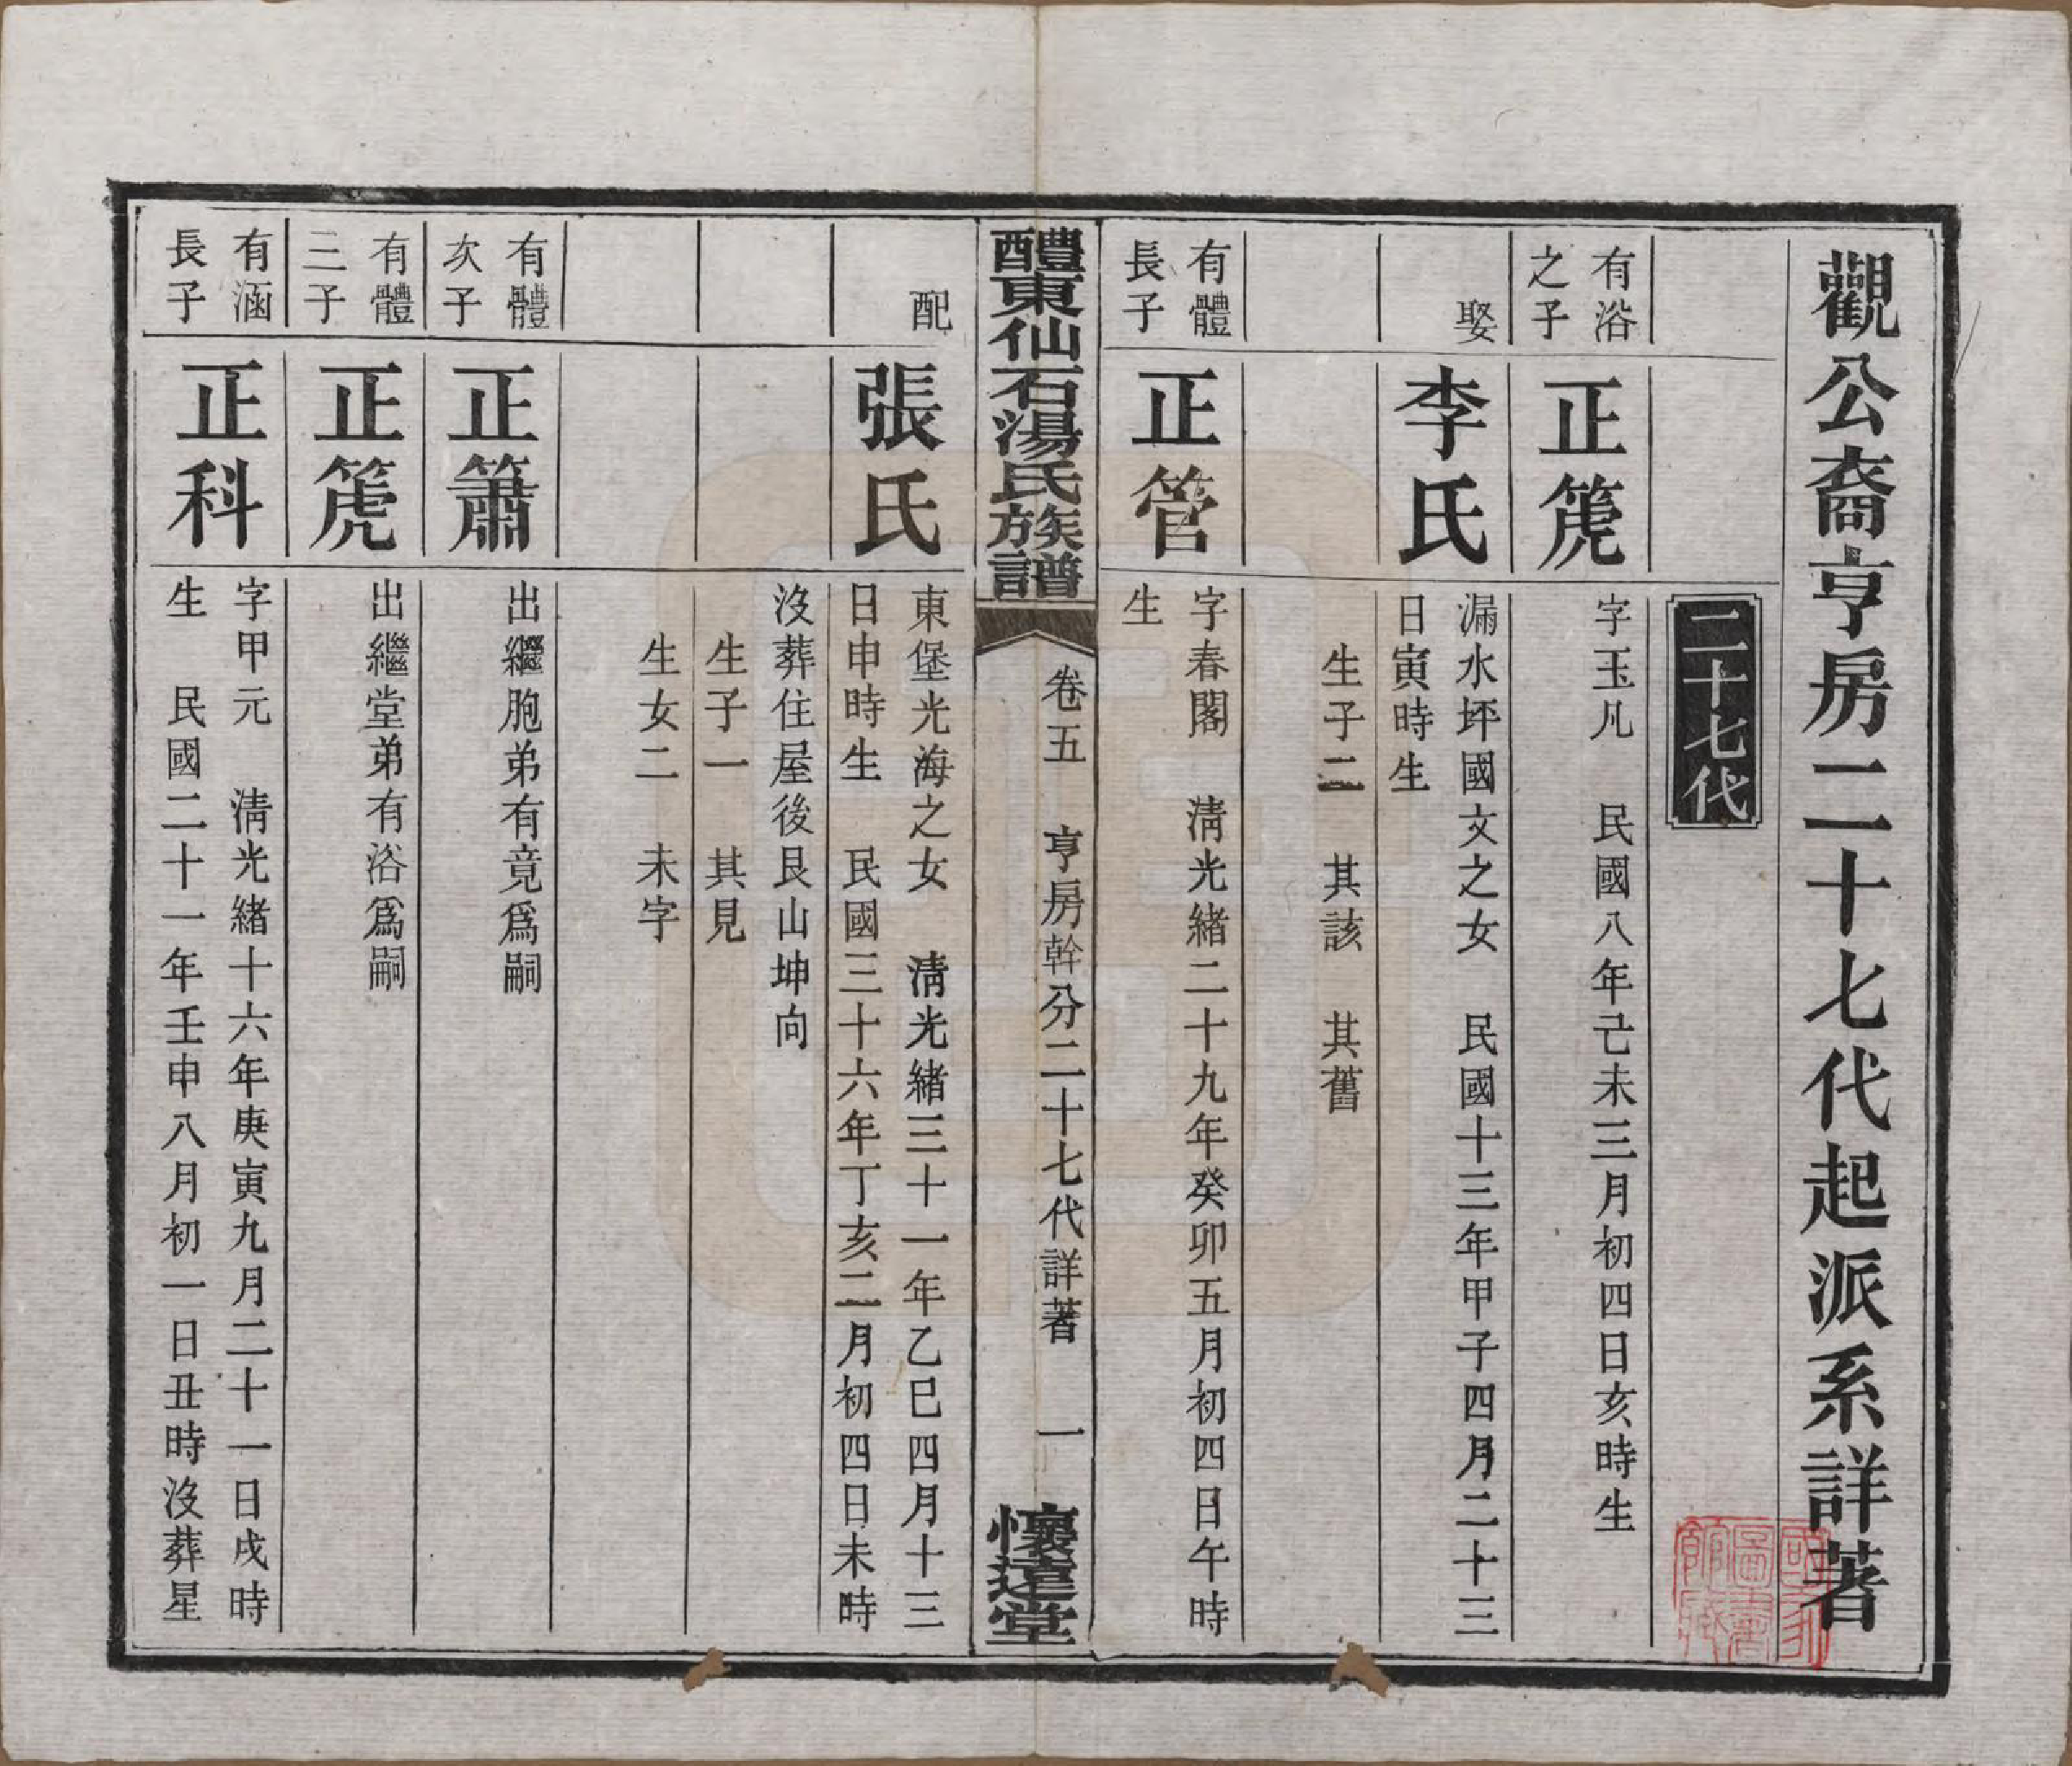 觀公裔亨房二十七代起派系詳著
二十七代
有浴之子
正箎
字玉凡　民國八年己未三月初四日亥時生
娶
李氏
漏水坪國文之女　民國十三年甲子四月二十三
日寅時生
生子二　其該　其舊
有體長子
正管
字春閣　淸光緒二十九年癸卯五月初四日午時
生
醴東仙石湯氏族譜
卷五　亨房幹分二十七代詳著　一
懷遠堂
配
張氏
東堡光海之女　淸光緒三十一年乙巳四月十三
日申時生　民國三十六年丁亥二月初四日未時
沒葬住屋後艮山坤向
生子一　其見
生女二　未字
有體次子
正簫
出繼胞弟有竟爲嗣
有體三子
正箎
出繼堂弟有浴爲嗣
有涵長子
正科
字甲元　淸光緒十六年庚寅九月二十一日戌時
生　民國二十一年壬申八月初一日丑時沒葬星
國家圖書館藏